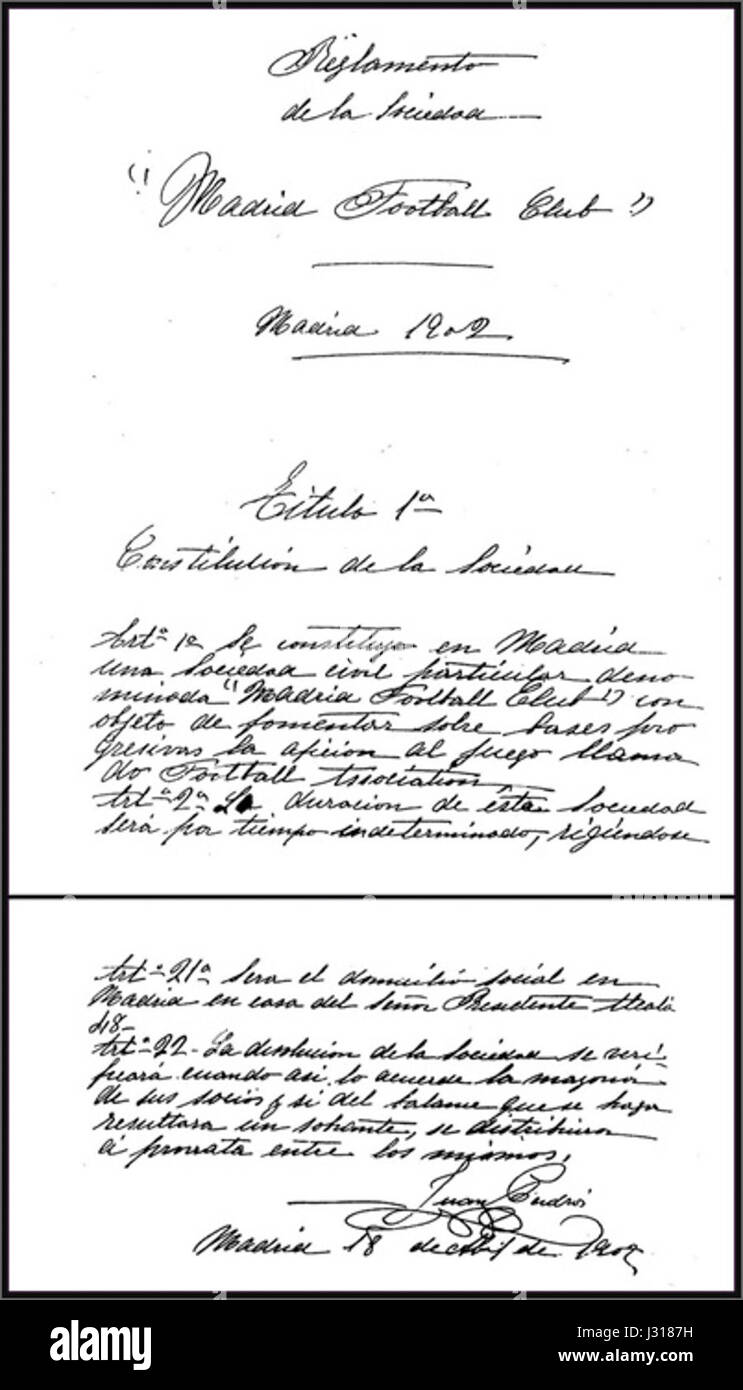 Reglamento
de la Sociedad
"Madrid Football Club"
Madrid 1902
Titulo 1º
Constitución de la Sociedad
Artº 1º Se constituye en Madrid
una Sociedad civil particular deno-
minada "Madrid Football Club" con
objeto de fomentar sobre bases pro
gresivas la aficion al juego llama
do Football Association
Artº 2º La duracion de esta Sociedad
será por tiempo indeterminado, rigiéndose
Artº 21º Sera el domicilio social en
Madrid en casa del Señor Presidente Alcalá
48-
Artº 22- La disolucion de la Sociedad se veri-
ficará cuando asi lo acuerde la mayoria
de sus socios y si del balance que se haga
resultara un sobrante, se distribuira
á prorrata entre los mismos.
Juan Padrós
Madrid 18 de Abril de 1902
alamy
Image ID: J3187H
www.alamy.com